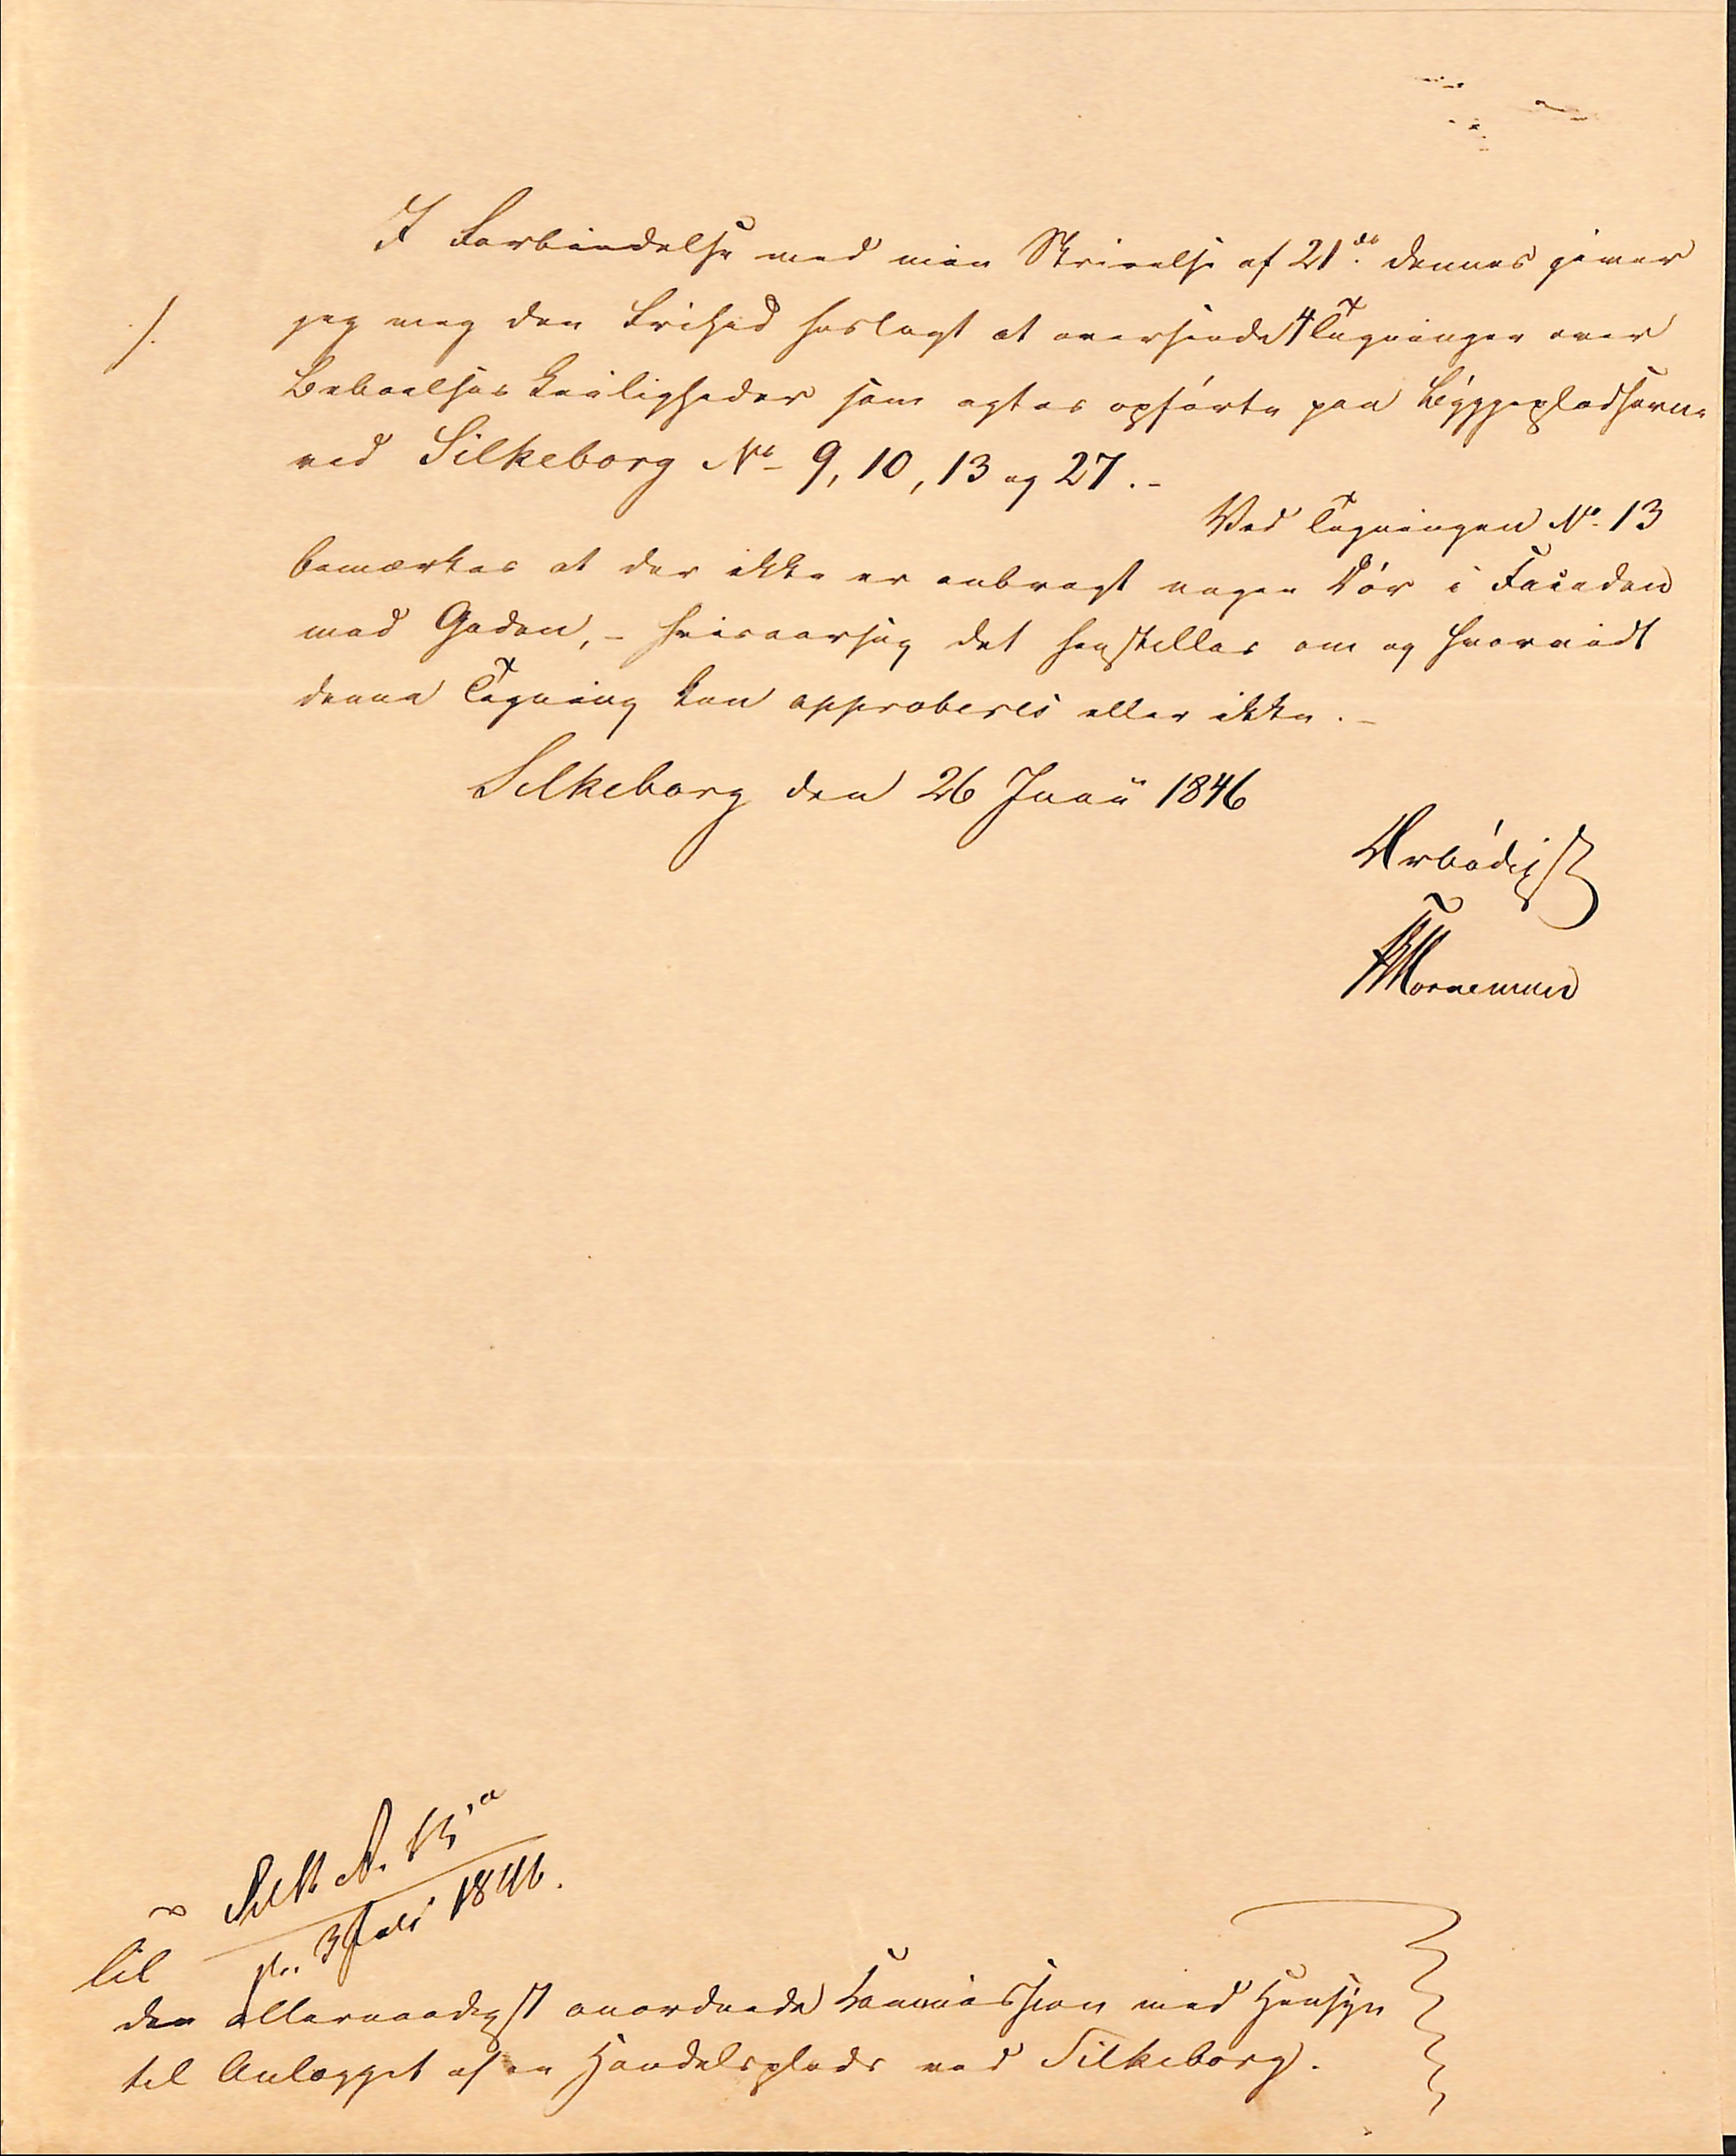 I Forbindelse med min Skrivelse af 21de dennes giver
./. jeg mig den Frihed hoslagt at oversende 4 Tegninger over
Beboelses Leiligheder som agtes opførte paa Byggepladserne
ved Silkeborg No 9, 10, 13 og 27. -
Ved Tegningen No 13
bemærkes at der ikke er anbragt nogen Dør i Facaden
mod Gaden, - hvisaarsag det henstilles om og hvorvidt
denne Tegning kan approberes eller ikke. -
Silkeborg den 26 Junii 1846
Ærbødigst
Silk N. 13
pr. 3 Juli 1846.
Til
den allernaadigst anordnede Commission med Hensyn
til Anlægget af en Handelsplads ved Silkeborg.